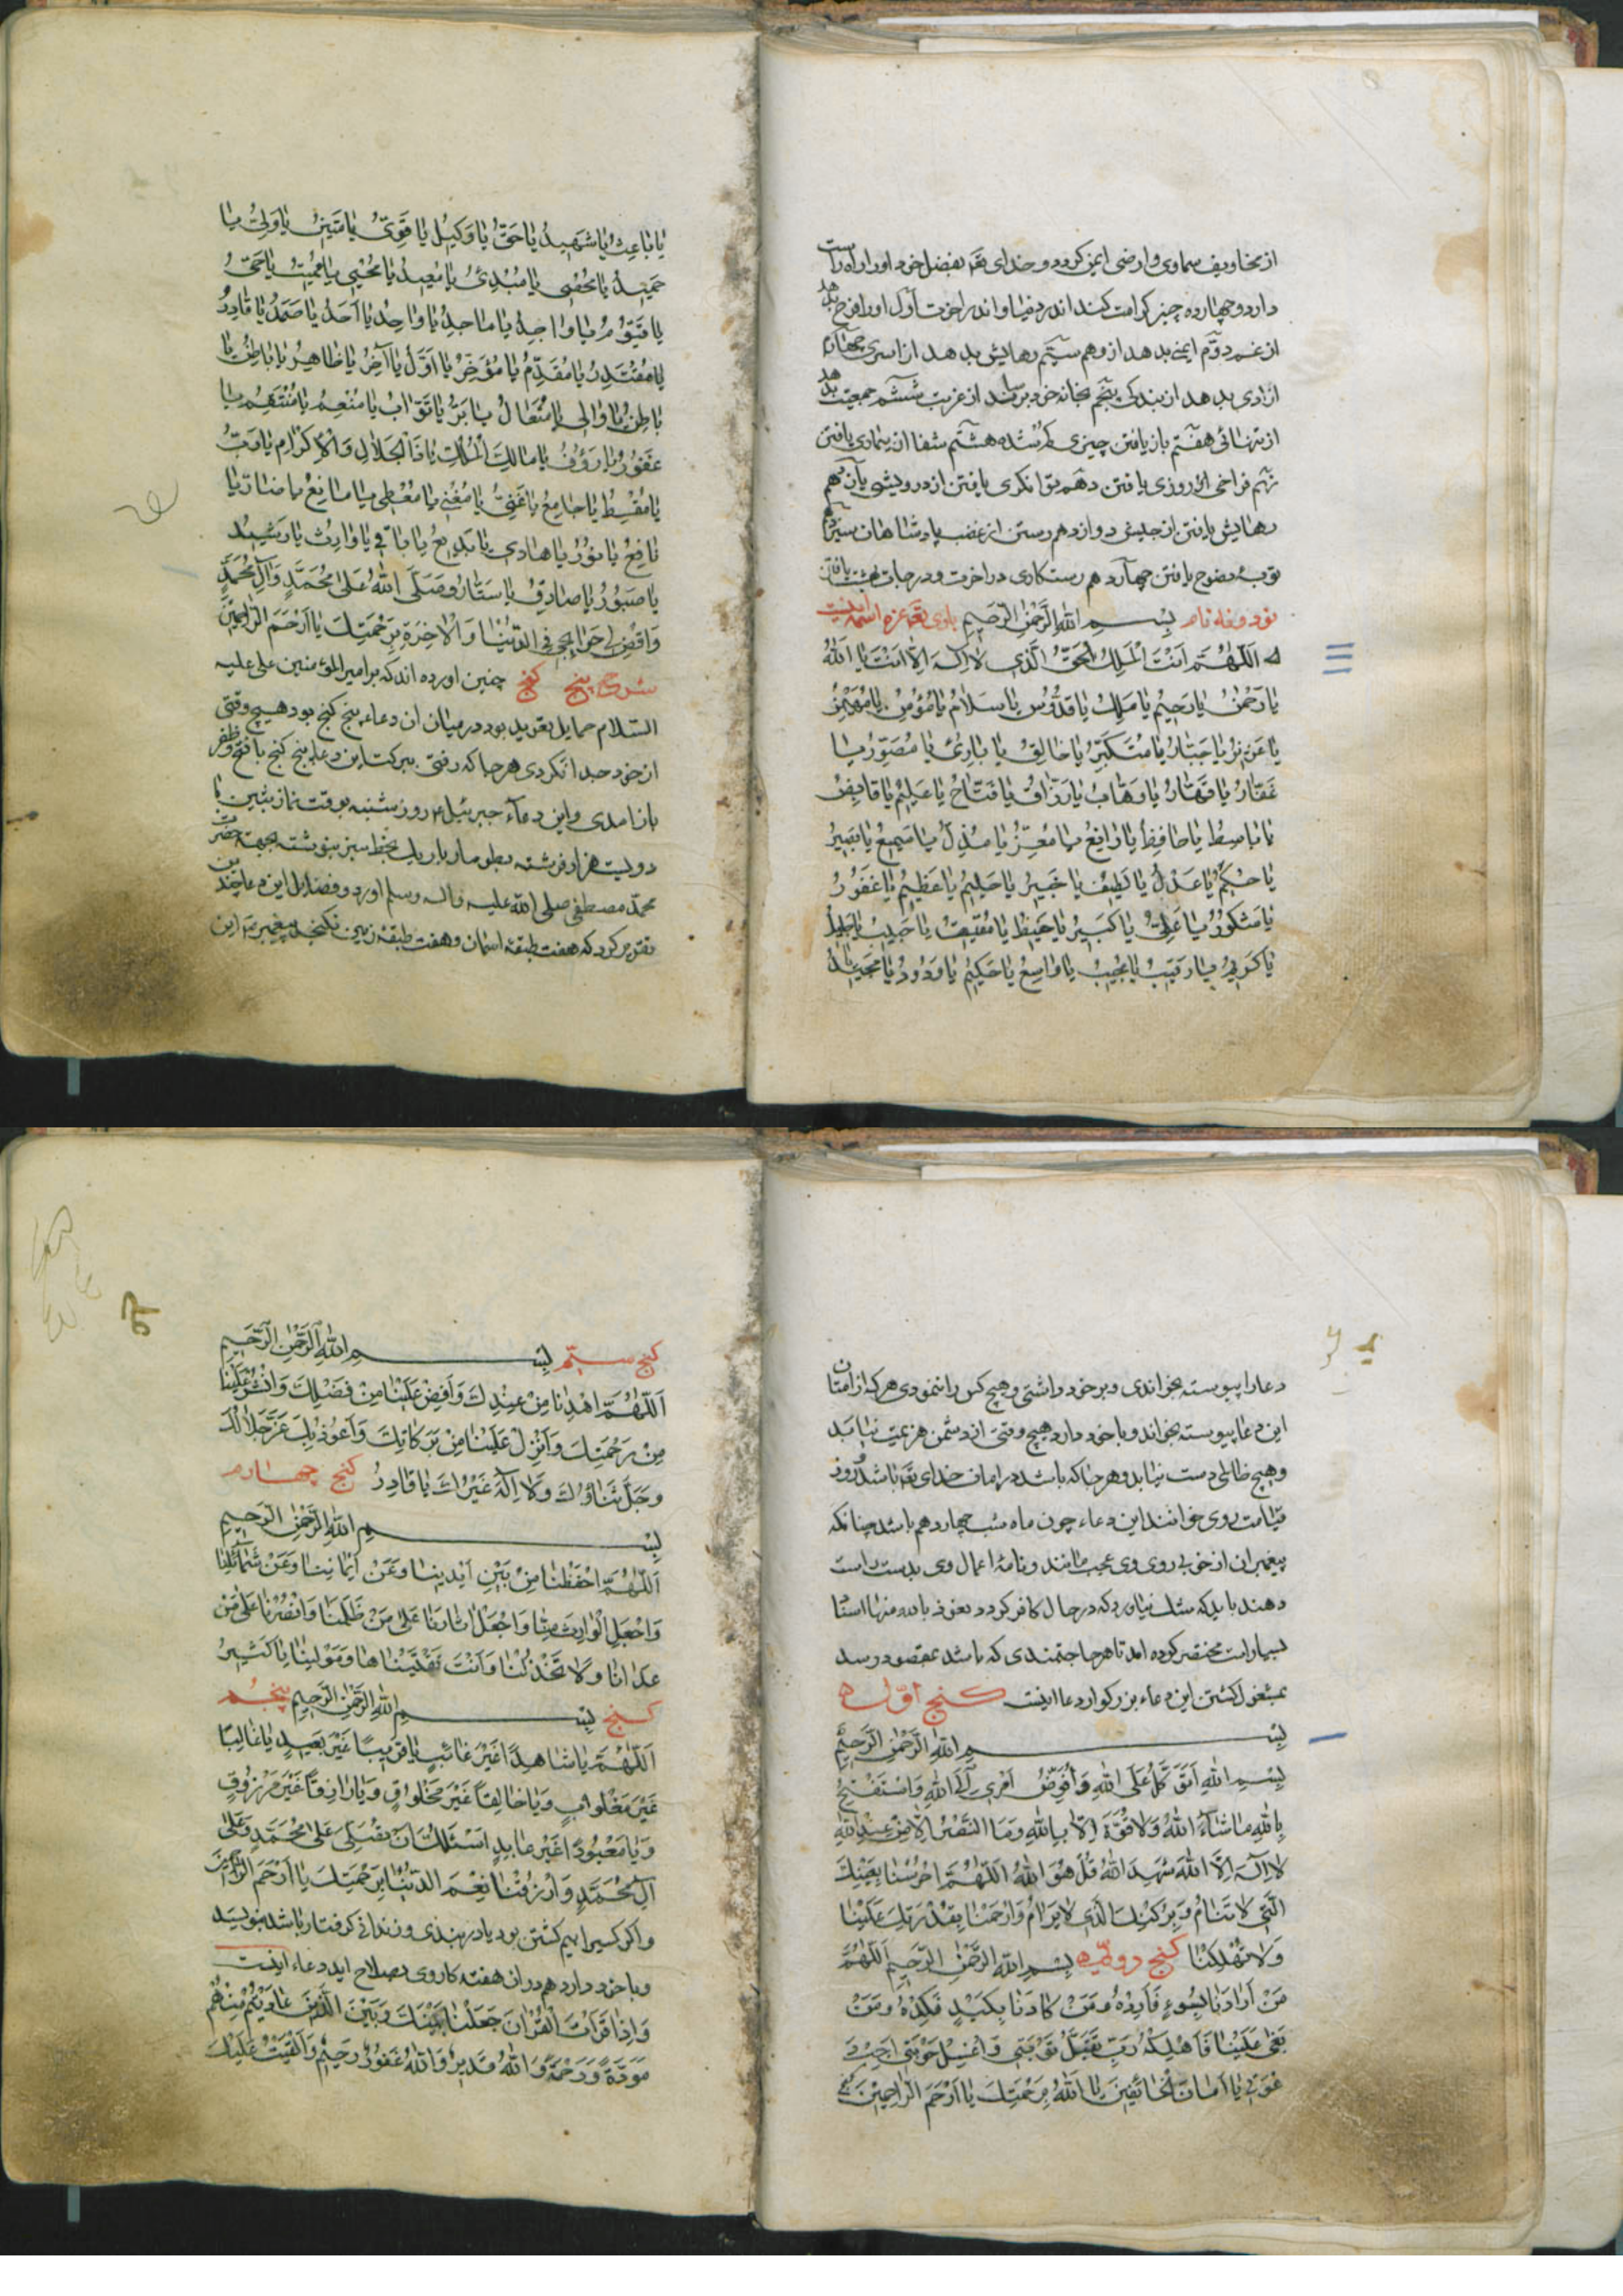 از مخاویف سماوی و ارضی ایمن کردد و خدای تعم بفضل خود او را راه راست
دارد و چهارده چیز کرامت کند اندر دنیا و اندر اخرت اوّل او را فرح بدهد
از غم دوّم ایمنی بدهد از وهم سیّم رهایش بدهد از اسری چهارم
ازادی بدهد از بندکی پنجم بخانه خود برساند از غربت ششم جمعیت بدهد
از تنهائی هفتم باز یافتن چیزی کم شده هشتم شفا از بیماری یافتن
نهم فراخی از روزی یافتن دهم توانکری یافتن از درویشی یازدهم
رهایش یافتن از حبس دوازدهم رستن از غضب پادشاهان سیزدهم
توبهٔ نصوح یافتن چهاردهم رستکاری در اخرت و درجات بهشت یافتن
نود و نه نام بِسْمِ اللهِ الرَّحْمٰنِ الرَّحیمِ باری تعم عزه اسمه اینست
اَللّٰهُمَّ اَنْتَ الْمَلِكُ الْحَقُّ الَّذی لٰا اِلٰهَ اِلّٰا اَنْتَ یٰا اَللهُ
یٰا رَحْمٰنُ یٰا رَحیمُ یٰا مَلِكُ یٰا قُدُّوسُ یٰا سَلٰامُ یٰا مُؤْمِنُ یٰا مُهَیْمِنُ
یٰا عَزیزُ یٰا جَبّٰارُ یٰا مُتَكَبِّرُ یٰا خٰالِقُ یٰا بٰارِئُ یٰا مُصَوِّرُ یٰا
غَفّٰارُ یٰا قَهّٰارُ یٰا وَهّٰابُ یٰا رَزّٰاقُ یٰا فَتّٰاحُ یٰا عَلیمُ یٰا قٰابِضُ
یٰا بٰاسِطُ یٰا خٰافِضُ یٰا رٰافِعُ یٰا مُعِزُّ یٰا مُذِلُّ یٰا سَمیعُ یٰا بَصیرُ
یٰا حَكَمُ یٰا عَدْلُ یٰا لَطیفُ یٰا خَبیرُ یٰا حَلیمُ یٰا عَظیمُ یٰا غَفُورُ
یٰا شَكُورُ یٰا عَلِیُّ یٰا كَبیرُ یٰا حَفیظُ یٰا مُقیتُ یٰا حَسیبُ یٰا جَلیلُ
یٰا كَریمُ یٰا رَقیبُ یٰا مُجیبُ یٰا وٰاسِعُ یٰا حَكیمُ یٰا وَدُودُ یٰا مَجیدُ
یٰا بٰاعِثُ یٰا شَهیدُ یٰا حَقُّ یٰا وَكیلُ یٰا قَوِیُّ یٰا مَتینُ یٰا وَلِیُّ یٰا
حَمیدُ یٰا مُحْصی یٰا مُبْدِئُ یٰا مُعیدُ یٰا مُحْیی یٰا مُمیتُ یٰا حَیُّ
یٰا قَیُّومُ یٰا وٰاجِدُ یٰا مٰاجِدُ یٰا وٰاحِدُ یٰا اَحَدُ یٰا صَمَدُ یٰا قٰادِرُ
یٰا مُقْتَدِرُ یٰا مُقَدِّمُ یٰا مُؤَخِّرُ یٰا اَوَّلُ یٰا آخِرُ یٰا ظٰاهِرُ یٰا بٰاطِنُ یٰا
بٰاطِنُ یٰا وٰالی یٰا مُتَعٰالُ یٰا بَرُّ یٰا تَوّٰابُ یٰا مُنْعِمُ یٰا مُنْتَقِمُ یٰا
غَفُورُ یٰا رَؤُفُ یٰا مٰالِكَ الْمُلْكِ یٰا ذَا الْجَلٰالِ وَ الْاِكْرٰامِ یٰا رَبُّ
یٰا مُقْسِطُ یٰا جٰامِعُ یٰا غَنِیُّ یٰا مُغْنی یٰا مُعْطی یٰا مٰانِعُ یٰا ضٰارُّ یٰا
نٰافِعُ یٰا نُورُ یٰا هٰادی یٰا بَدیعُ یٰا بٰاقی یٰا وٰارِثُ یٰا رَشیدُ
یٰا صَبُورُ یٰا صٰادِقُ یٰا سَتّٰارُ وَ صَلَّی اللهُ عَلٰی مُحَمَّدٍ وَ آلِ مُحَمَّدٍ
وَاقْضِ لی حَوٰائِجی فِی الدُّنْیٰا وَ الْاٰخِرَةِ بِرَحْمَتِكَ یٰا اَرْحَمَ الرّٰاحِمینَ
شرح پنج کنج چنین اورده اند که بر امیر المؤمنین علی علیه
السّلام حمایل تعویذ بود در میان ان دعاء پنج کنج بود هیچ وقتی
از خود جدا نکردی هر جا که رفتی ببرکت این دعاء پنج کنج با فتح و ظفر
باز امدی و این دعآء جبرئیل ۴ روز شنبه بوقت نماز پیشین با
دویست هزار فرشته بطومار باریك بخط سبز بنوشته بجهة حضرت
محمّد مصطفی صلی الله علیه و اله و سلم اورد و فضایل این دعا چند
تقریر کرد که هفت طبقهٔ اسمان و هفت طبقهٔ زمین نکنجد پیغمبر ص این
دعا را پیوسته بخواندی و بر خود داشتی و هیچ کس را ننمودی هر که از امتان
این دعا پیوسته بخواند و با خود دارد هیچ وقتی از دشمن هزیمت نیابد
و هیچ ظالمی دست نیابد و هر جا که باشد در امان خدای تعم باشد و روز
قیامت روی خواننده این دعاء چون ماه شب چهاردهم باشد چنانکه
پیغمبران از خوبی روی وی عجب مانند و نامهٔ اعمال وی بدست راست
دهند باید که شك نیاورد که در حال کافر کردد نعوذ بالله منها اسناد
بسیار است مختصر کرده امد تا هر حاجتمندی که باشد بمقصود رسد
بمشغول کشتن این دعاء بزرکوار دعا اینست کنج اوّل
بِسْمِ اللهِ الرَّحْمٰنِ الرَّحیمِ
بِسْمِ اللهِ اَتَوَكَّلُ عَلَی اللهِ وَ اُفَوِّضُ اَمْری اِلَی اللهِ وَ اَسْتَفْتِحُ
بِاللهِ مٰا شٰآءَ اللهُ وَ لٰا قُوَّةَ اِلّٰا بِاللهِ وَ مَا النَّصْرُ اِلّٰا مِنْ عِنْدِ اللهِ
لٰا اِلٰهَ اِلَّا اللهُ شَهِدَ اللهُ قُلْ هُوَ اللهُ اَللّٰهُمَّ احْرُسْنٰا بِعَیْنِكَ
الَّتی لٰا تَنٰامُ وَ بِرُكْنِكَ الَّذی لٰا یُرٰامُ وَ ارْحَمْنٰا بِقُدْرَتِكَ عَلَیْنٰا
وَ لٰا تُهْلِكْنٰا کنج دوّم بِسْمِ اللهِ الرَّحْمٰنِ الرَّحیمِ اَللّٰهُمَّ
مَنْ اَرٰادَنٰا بِسُوءٍ فَاَرِدْهُ وَ مَنْ كٰادَنٰا بِكَیْدٍ فَكِدْهُ وَ مَنْ
بَغٰی عَلَیْنٰا فَاَهْلِكْهُ رَبِّ تَقَبَّلْ تَوْبَتی وَ اغْسِلْ حَوْبَتی وَ اَجِبْ دَ
عْوَتی یٰا اَمٰانَ الْخٰائِفینَ یٰا اَللهُ بِرَحْمَتِكَ یٰا اَرْحَمَ الرّٰاحِمینَ
کنج سیّم بِسْمِ اللهِ الرَّحْمٰنِ الرَّحیمِ
اَللّٰهُمَّ اهْدِنٰا مِنْ عِنْدِكَ وَ اَفِضْ عَلَیْنٰا مِنْ فَضْلِكَ وَ انْشُرْ عَلَیْنٰا
مِنْ رَحْمَتِكَ وَ اَنْزِلْ عَلَیْنٰا مِنْ بَرَكٰاتِكَ وَ اَعُوذُ بِكَ عَزَّ جَلٰالُكَ
وَ جَلَّ ثَنٰاؤُكَ وَ لٰا اِلٰهَ غَیْرُكَ یٰا قٰادِرُ کنج چهارم
بِسْمِ اللهِ الرَّحْمٰنِ الرَّحیمِ
اَللّٰهُمَّ احْفَظْنٰا مِنْ بَیْنِ اَیْدینٰا وَ عَنْ اَیْمٰانِنٰا وَ عَنْ شَمٰآئِلِنٰا
وَ اجْعَلِ الْوٰارِثَ مِنّٰا وَ اجْعَلْ ثٰارَنٰا عَلٰی مَنْ ظَلَمَنٰا وَ انْصُرْنٰا عَلٰی مَنْ
عٰادٰانٰا وَ لٰا تَخْذُلْنٰا وَ اَنْتَ وَ مَوْلٰینٰا یٰا كَثیرُ
کنج بِسْمِ اللهِ الرَّحْمٰنِ الرَّحیمِ پنجم
اَللّٰهُمَّ یٰا شٰاهِدًا غَیْرَ غٰائِبٍ یٰا قَریبًا غَیْرَ بَعیدٍ یٰا غٰالِبًا
غَیْرَ مَغْلُوبٍ وَ یٰا خٰالِقًا غَیْرَ مَخْلُوقٍ وَ یٰا رٰازِقًا غَیْرَ مَرْزُوقٍ
وَ یٰا مَعْبُودًا غَیْرَ عٰابِدٍ اَسْئَلُكَ اَنْ تُصَلِّیَ عَلٰی مُحَمَّدٍ وَ عَلٰی
آلِ مُحَمَّدٍ وَ ارْزُقْنٰا نِعَمَ الدُّنْیٰا بِرَحْمَتِكَ یٰا اَرْحَمَ الرّٰاحِمینَ
و اکر کسیرا بیم کشتن بود یا در بندی و زندانی کرفتار باشد بنویسد
و با خود دارد هم در ان هفته کار وی بصلاح اید دعاء اینست
وَ اِذٰا قَرَاْتَ الْقُرْاٰنَ جَعَلْنٰا بَیْنَكَ وَ بَیْنَ الَّذینَ عٰادَیْتُمْ مِنْهُمْ
مَوَدَّةً وَ رَحْمَةً وَ اللهُ قَدیرٌ وَ اللهُ غَفُورٌ رَحیمٌ وَ اَلْقَیْتُ عَلَیْكَ